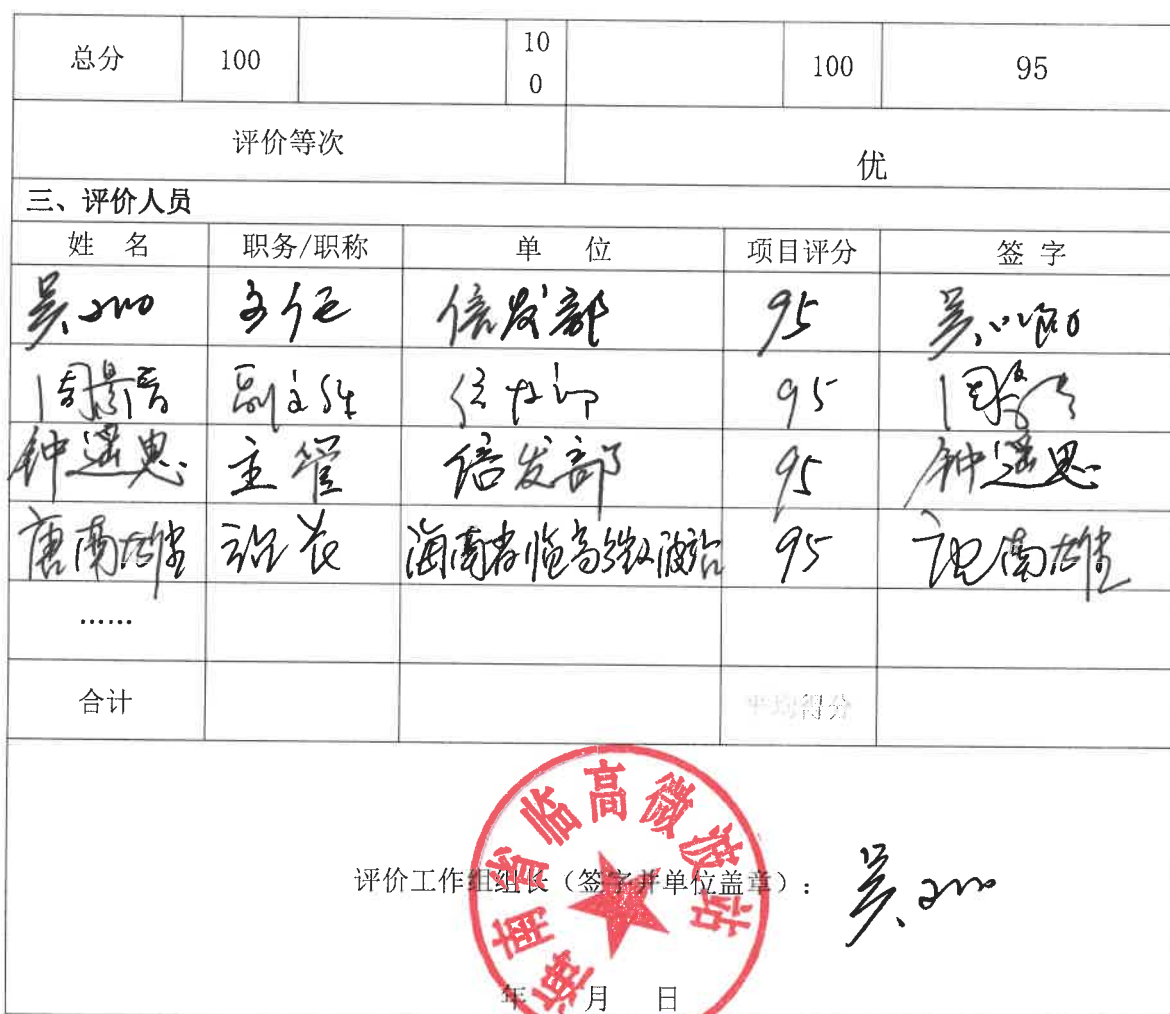 总分 100 100 100 95
评价等次 优
三、评价人员
姓 名 职务/职称 单 位 项目评分 签 字
吴 主任 信发部 95 吴
周景 副主任 信发部 95 周
钟遥思 主管 信发部 95 钟遥思
唐南雄 站长 海南省临高微波站 95 唐南雄
……
合计 平均得分
海南省临高微波站
评价工作组组长（签字并单位盖章）： 吴
年 月 日